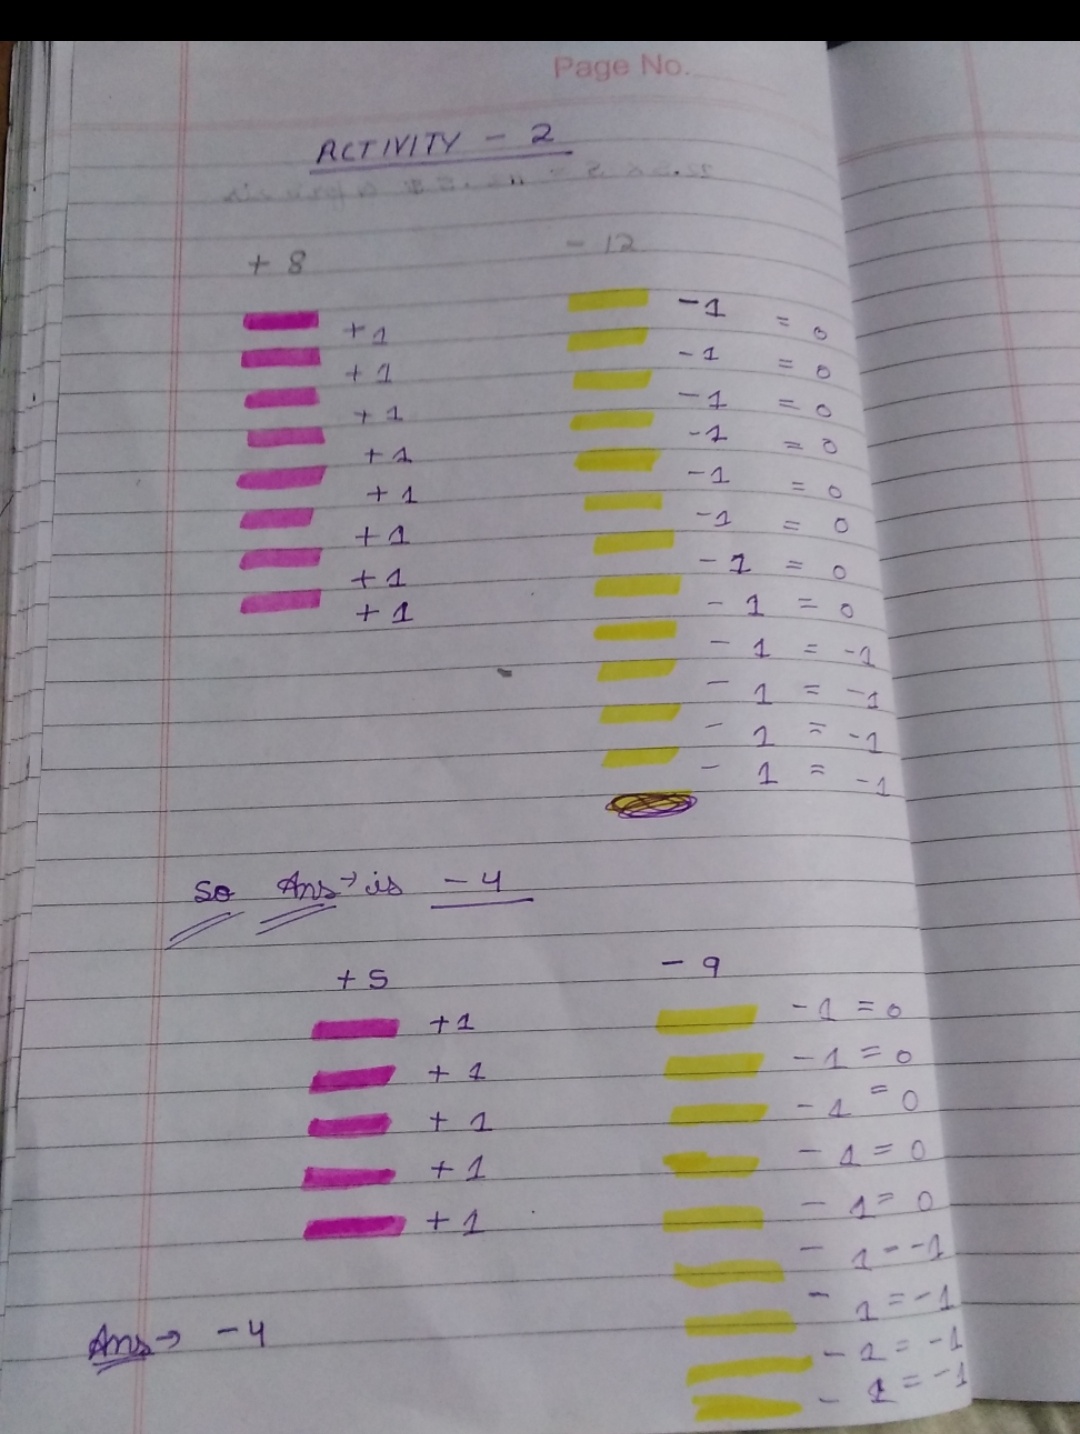 Page No.
ACTIVITY - 2
+ 8 - 12
+1 -1 = 0
+1 -1 = 0
+1 -1 = 0
+1 -1 = 0
+1 -1 = 0
+1 -1 = 0
+1 -1 = 0
+1 -1 = 0
-1 = -1
-1 = -1
-1 = -1
-1 = -1
So Ans → is -4
+ 5 - 9
+1 -1 = 0
+1 -1 = 0
+1 -1 = 0
+1 -1 = 0
+1 -1 = 0
-1 = -1
-1 = -1
-1 = -1
-1 = -1
Ans → -4